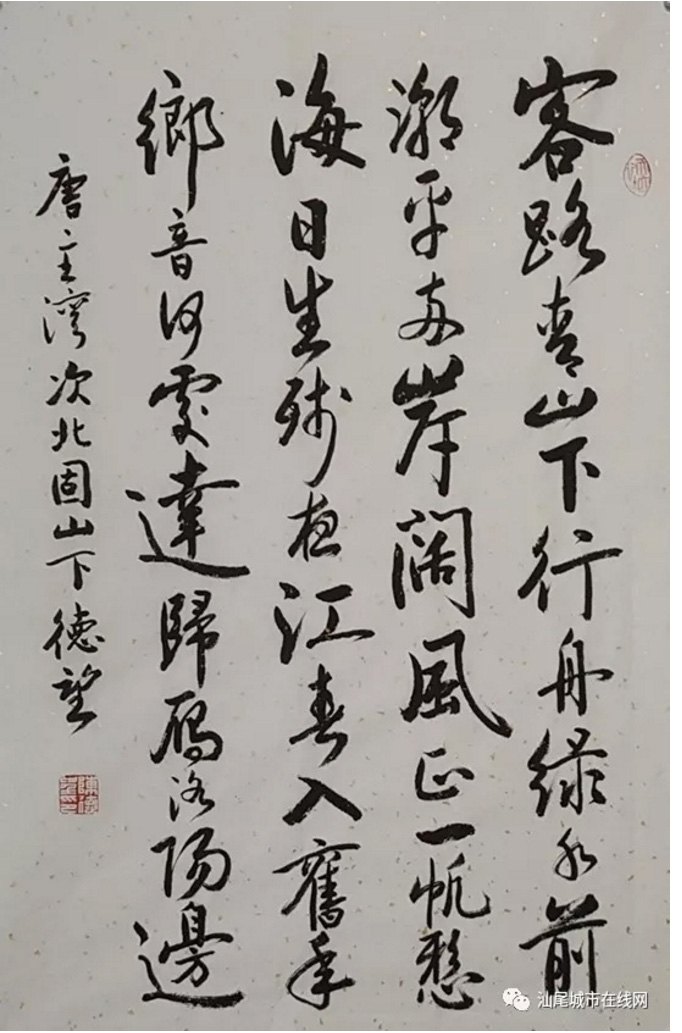 客路青山下行舟緑水前
潮平兩岸闊風正一帆懸
海日生殘夜江春入舊年
鄉音何處達歸鴈洛陽邊
唐王灣次北固山下德望
汕尾城市在线网